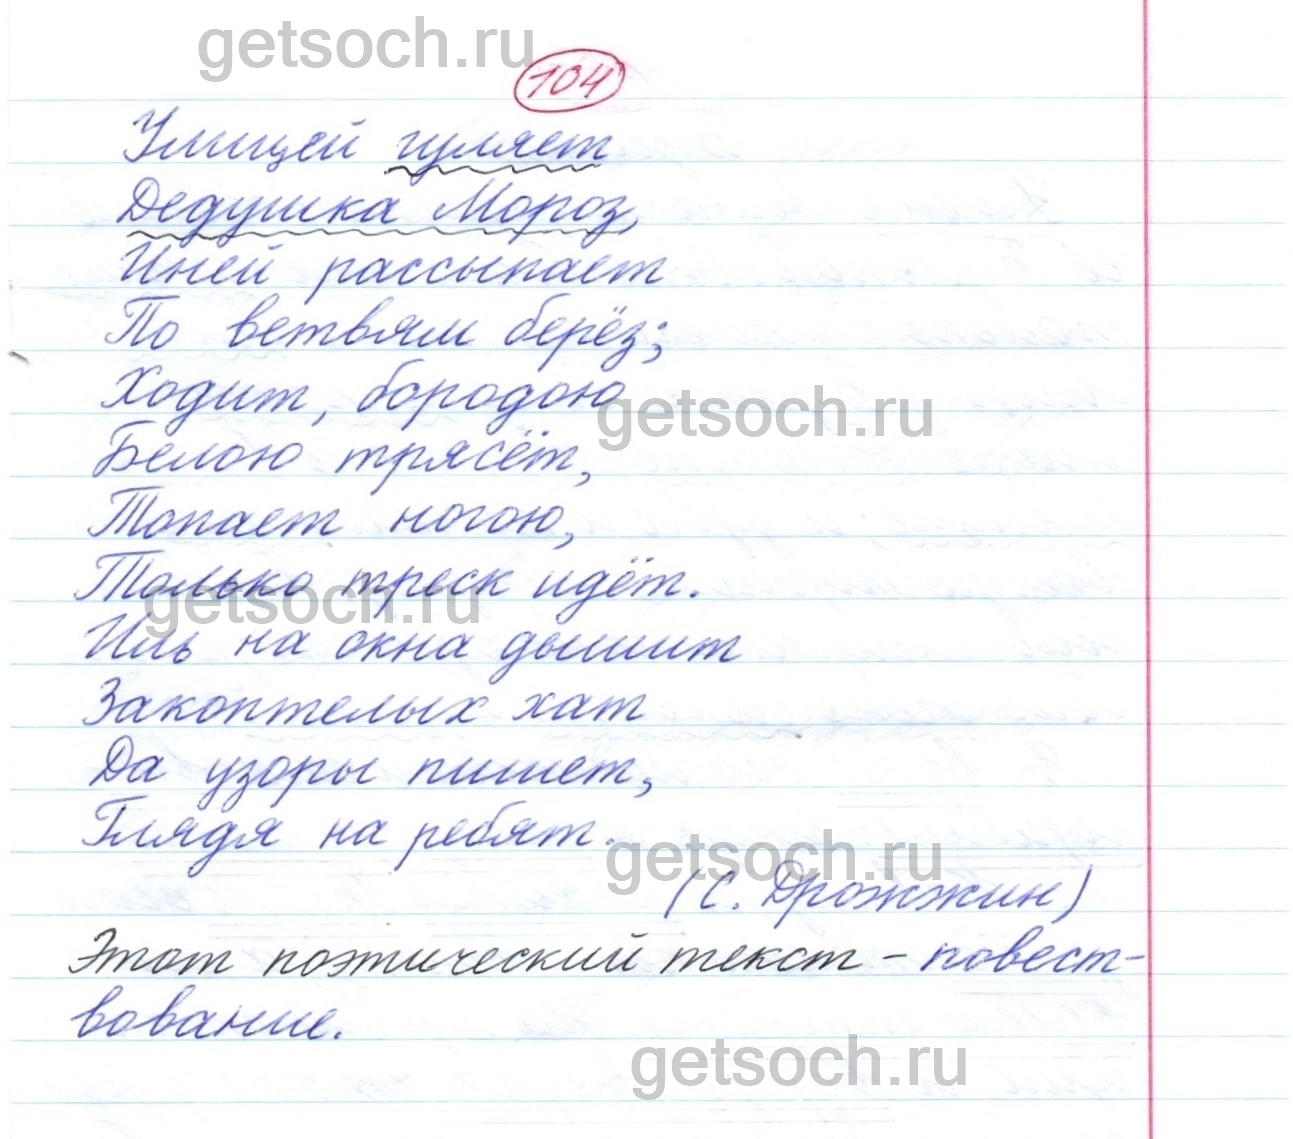 getsoch.ru
104
Улицей гуляет
Дедушка Мороз,
Иней рассыпает
По ветвям берёз;
Ходит, бородою
getsoch.ru
Белою трясёт,
Топает ногою,
Только треск идёт.
getsoch.ru
Иль на окна дышит
Закоптелых хат
Да узоры пишет,
Глядя на ребят.
getsoch.ru
(С. Дрожжин)
Этот поэтический текст – повест-
вование.
getsoch.ru